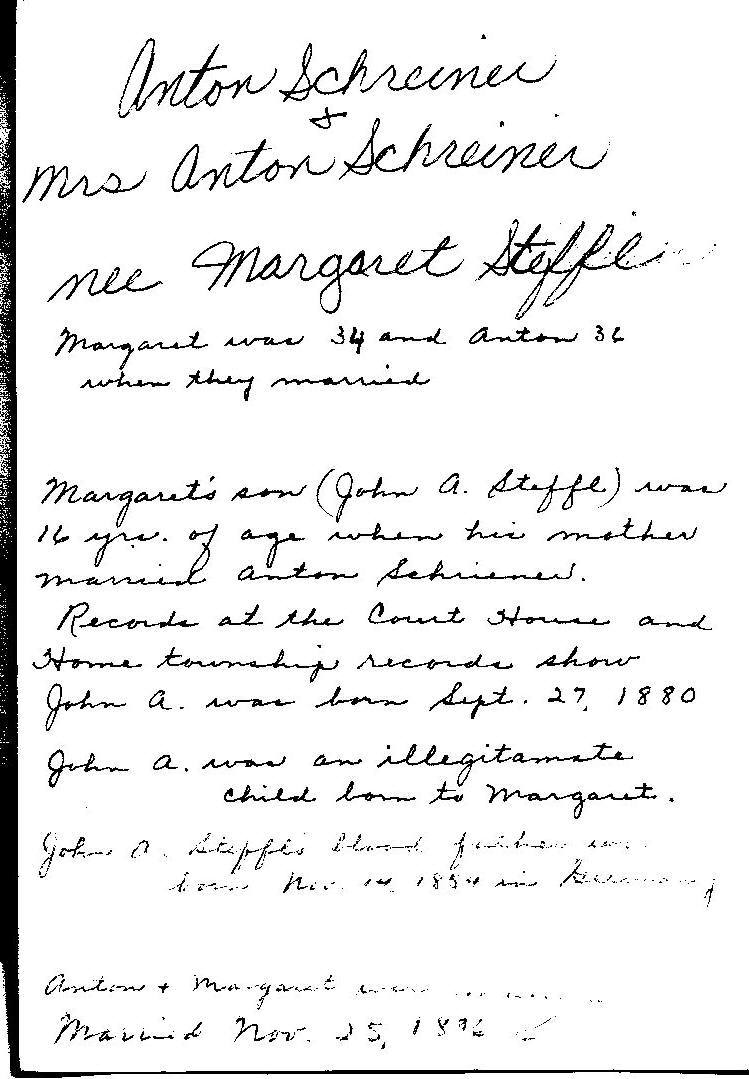 Anton Schreiner
+
Mrs Anton Schreiner
nee Margaret Steffl
Margaret was 34 and Anton 36
when they married
Margaret's son (John A. Steffl) was
16 yrs. of age when his mother
married Anton Schriener.
Records at the Court House and
Home township records show
John A. was born Sept. 27, 1880
John A. was an illegitamate
child born to Margaret.
John A. Steffl's blood father was
born Nov. 14, 1854 in Germany
Anton + Margaret were
Married Nov. 25, 1896